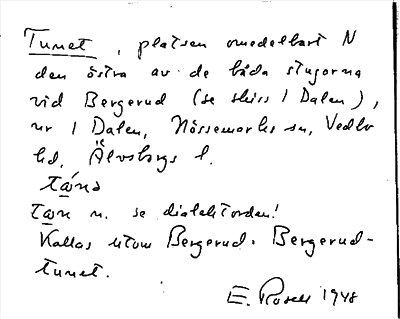 Tunet, platsen omedelbart N
den östra av de båda stugorna
vid Bergerud (se skiss 1 Dalen),
nr 1 Dalen, Nössemarks sn, Vedbo
hd, Älvsborgs l.
tæ̀nə
tæn n. se dialektorden!
Kallas utom Bergerud: Bergerud-
tunet.
E. Rosell 1948